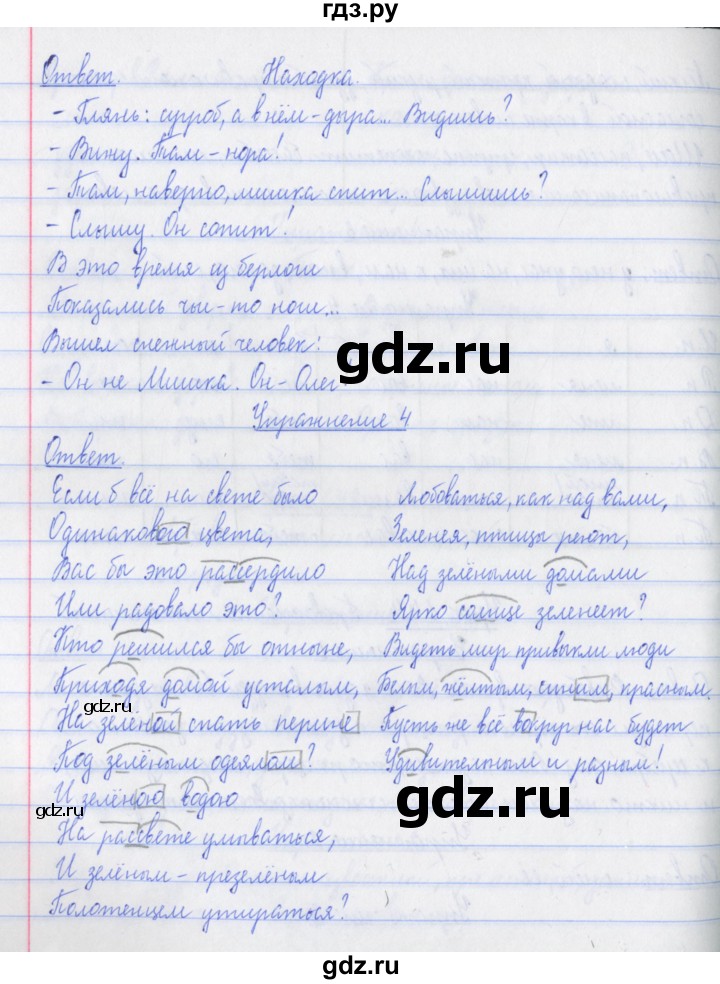 гдз.ру
Ответ. Находка.
- Глянь: сугроб, а в нём - дыра... Видишь?
- Вижу. Там - нора!
- Там, наверно, мишка спит... Слышишь?
- Слышу. Он сопит!
В это время из берлоги
Показались чьи-то ноги...
Вышел снежный человек:
- Он не Мишка. Он - Олег!
gdz.ru
Упражнение 4
Ответ.
Если б всё на свете было
Одинакового цвета,
Вас бы это рассердило
Или радовало это?
Кто решился бы отныне,
Приходя домой усталым,
На зеленой спать перине
Под зелёным одеялом?
И зелёною водою
На рассвете умываться,
И зелёным - презелёным
Полотенцем утираться?
Любоваться, как над вами,
Зеленея, птицы реют,
Над зелёными домами
Ярко солнце зеленеет?
Видеть мир привыкли люди
Белым, жёлтым, синим, красным.
Пусть же всё вокруг нас будет
Удивительным и разным!
gdz.ru
gdz.ru
gdz.ru
gdz.ru